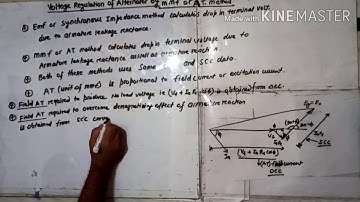 Voltage Regulation of Alternator by mmf or A.T. method
Made with KINEMASTER
① Emf or Synchronous Impedance method calculates drop in terminal volt.
due to armature leakage reactance.
② mmf or AT method calculates drop in terminal voltage due to
Armature leakage reactance as well as armature reaction.
③ Both of these methods uses Same and SCC data.
AT (unit of mmf) is proportional to field current or excitation current.
Field AT required to produce No load voltage i.e. (Vt + Ia Ra cosϕ) is obtained from OCC.
Field AT required to overcome demagnetizing effect of armature reaction
is obtained from SCC curve
(Vt + Ia Ra cosϕ)
Field current
OCC
SCC